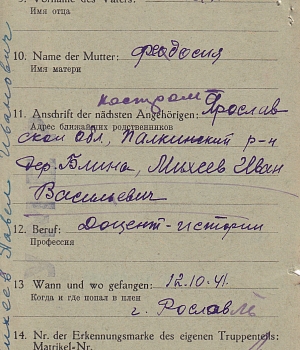 9. Vorname des Vaters:
Имя отца
10. Name der Mutter: Феодосия
Имя матери
костром
11. Anschrift der nächsten Angehörigen: Ярослав
Адрес ближайших родственников
ской обл, Палкинский р-н
дер. Блина, Михеев Иван
Васильевич
12. Beruf: Доцент-истории
Профессия
13 Wann und wo gefangen: 12.10.41.
Когда и где попал в плен
г. Рославль
14. Nr. der Erkennungsmarke des eigenen Truppenteils:
Matrikel-Nr.
Михеев Павел Иванович